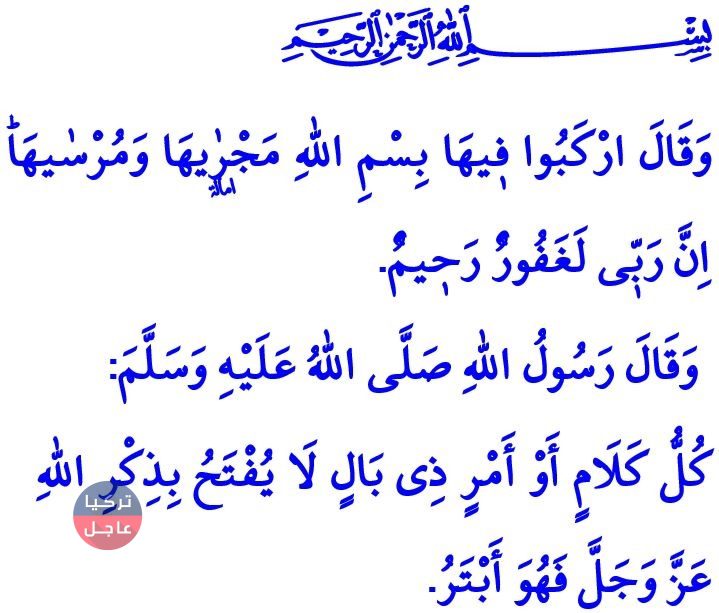 بِسْمِ اللهِ الرَّحْمٰنِ الرَّحِيمِ
وَقَالَ ارْكَبُوا فٖيهَا بِسْمِ اللهِ مَجْرٰۭيهَا وَمُرْسٰيهَاؕ
امالة
اِنَّ رَبّٖى لَغَفُورٌ رَحٖيمٌ.
وَقَالَ رَسُولُ اللهِ صَلَّى اللهُ عَلَيْهِ وَسَلَّمَ:
كُلُّ كَلَامٍ أَوْ أَمْرٍ ذِى بَالٍ لَا يُفْتَحُ بِذِكْرِ اللهِ
عَزَّ وَجَلَّ فَهُوَ أَبْتَرُ.
تركيا
عاجل